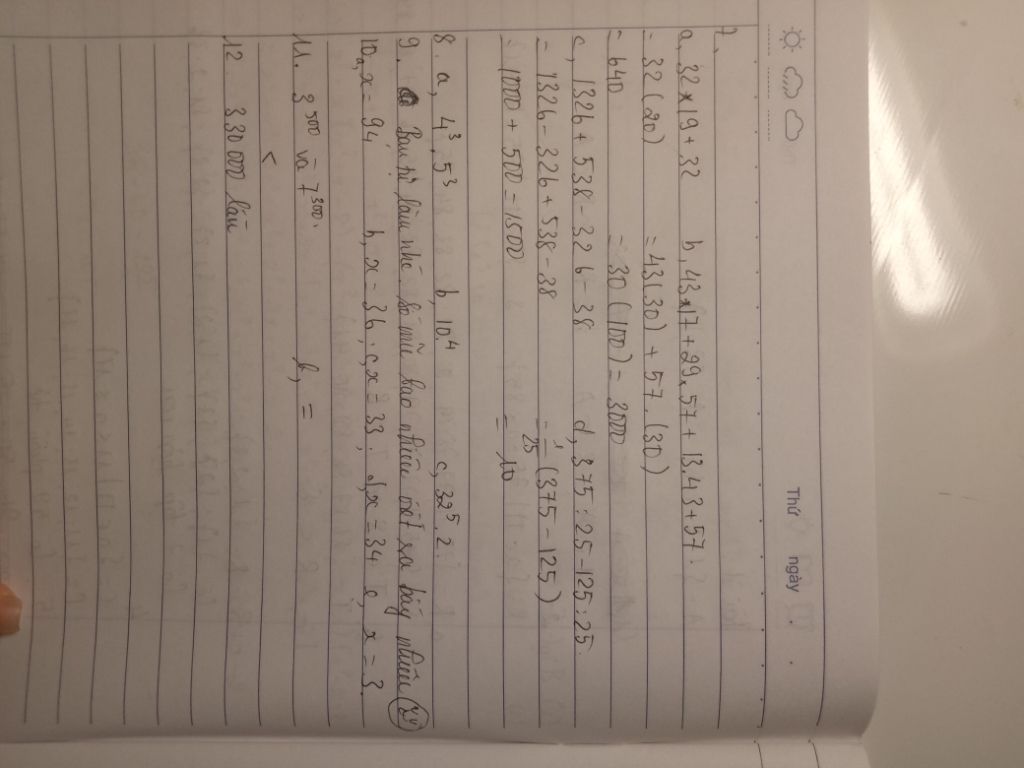 Thứ ngày
7.
a, 32 × 19 + 32 b, 43 × 17 + 29. 57 + 13. 43 + 57.
= 32 (20) = 43(30) + 57. (30)
= 640 = 30 (100) = 3000
c, 1326 + 538 - 326 - 38 d, 375 : 25 - 125 : 25.
= 1326 - 326 + 538 - 38 = 1/25 (375 - 125)
1000 + 500 = 1500 = 10
8. a, 4³, 5³ b, 10⁴ c, 32⁵ 2.
9. lâu nhé. Số mũ bao nhiêu viết sau bấy nhiêu
10 a, x = 94 b, x = 36. c, x = 33. d, x = 34 e, x = 3.
11. 3⁵⁰⁰ và 7³⁰⁰. b, =
<
12. 330 000 lần